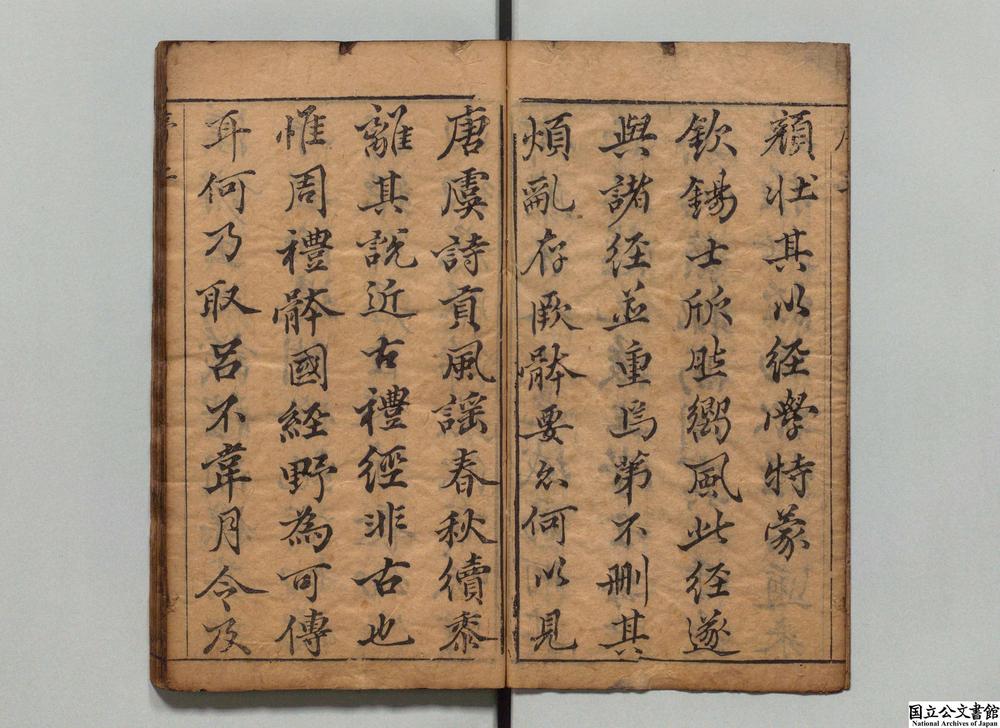 頽状其以経學特蒙
欽錫士欣然嚮風此経遂
與諸経並重焉第不刪其
煩亂存厥骵要忽何以見
唐虞詩貢風謡春秋續黍
離其説近古禮經非古也
惟周禮骵國経野為可傳
耳何乃取呂不韋月令及
国立公文書館
National Archives of Japan